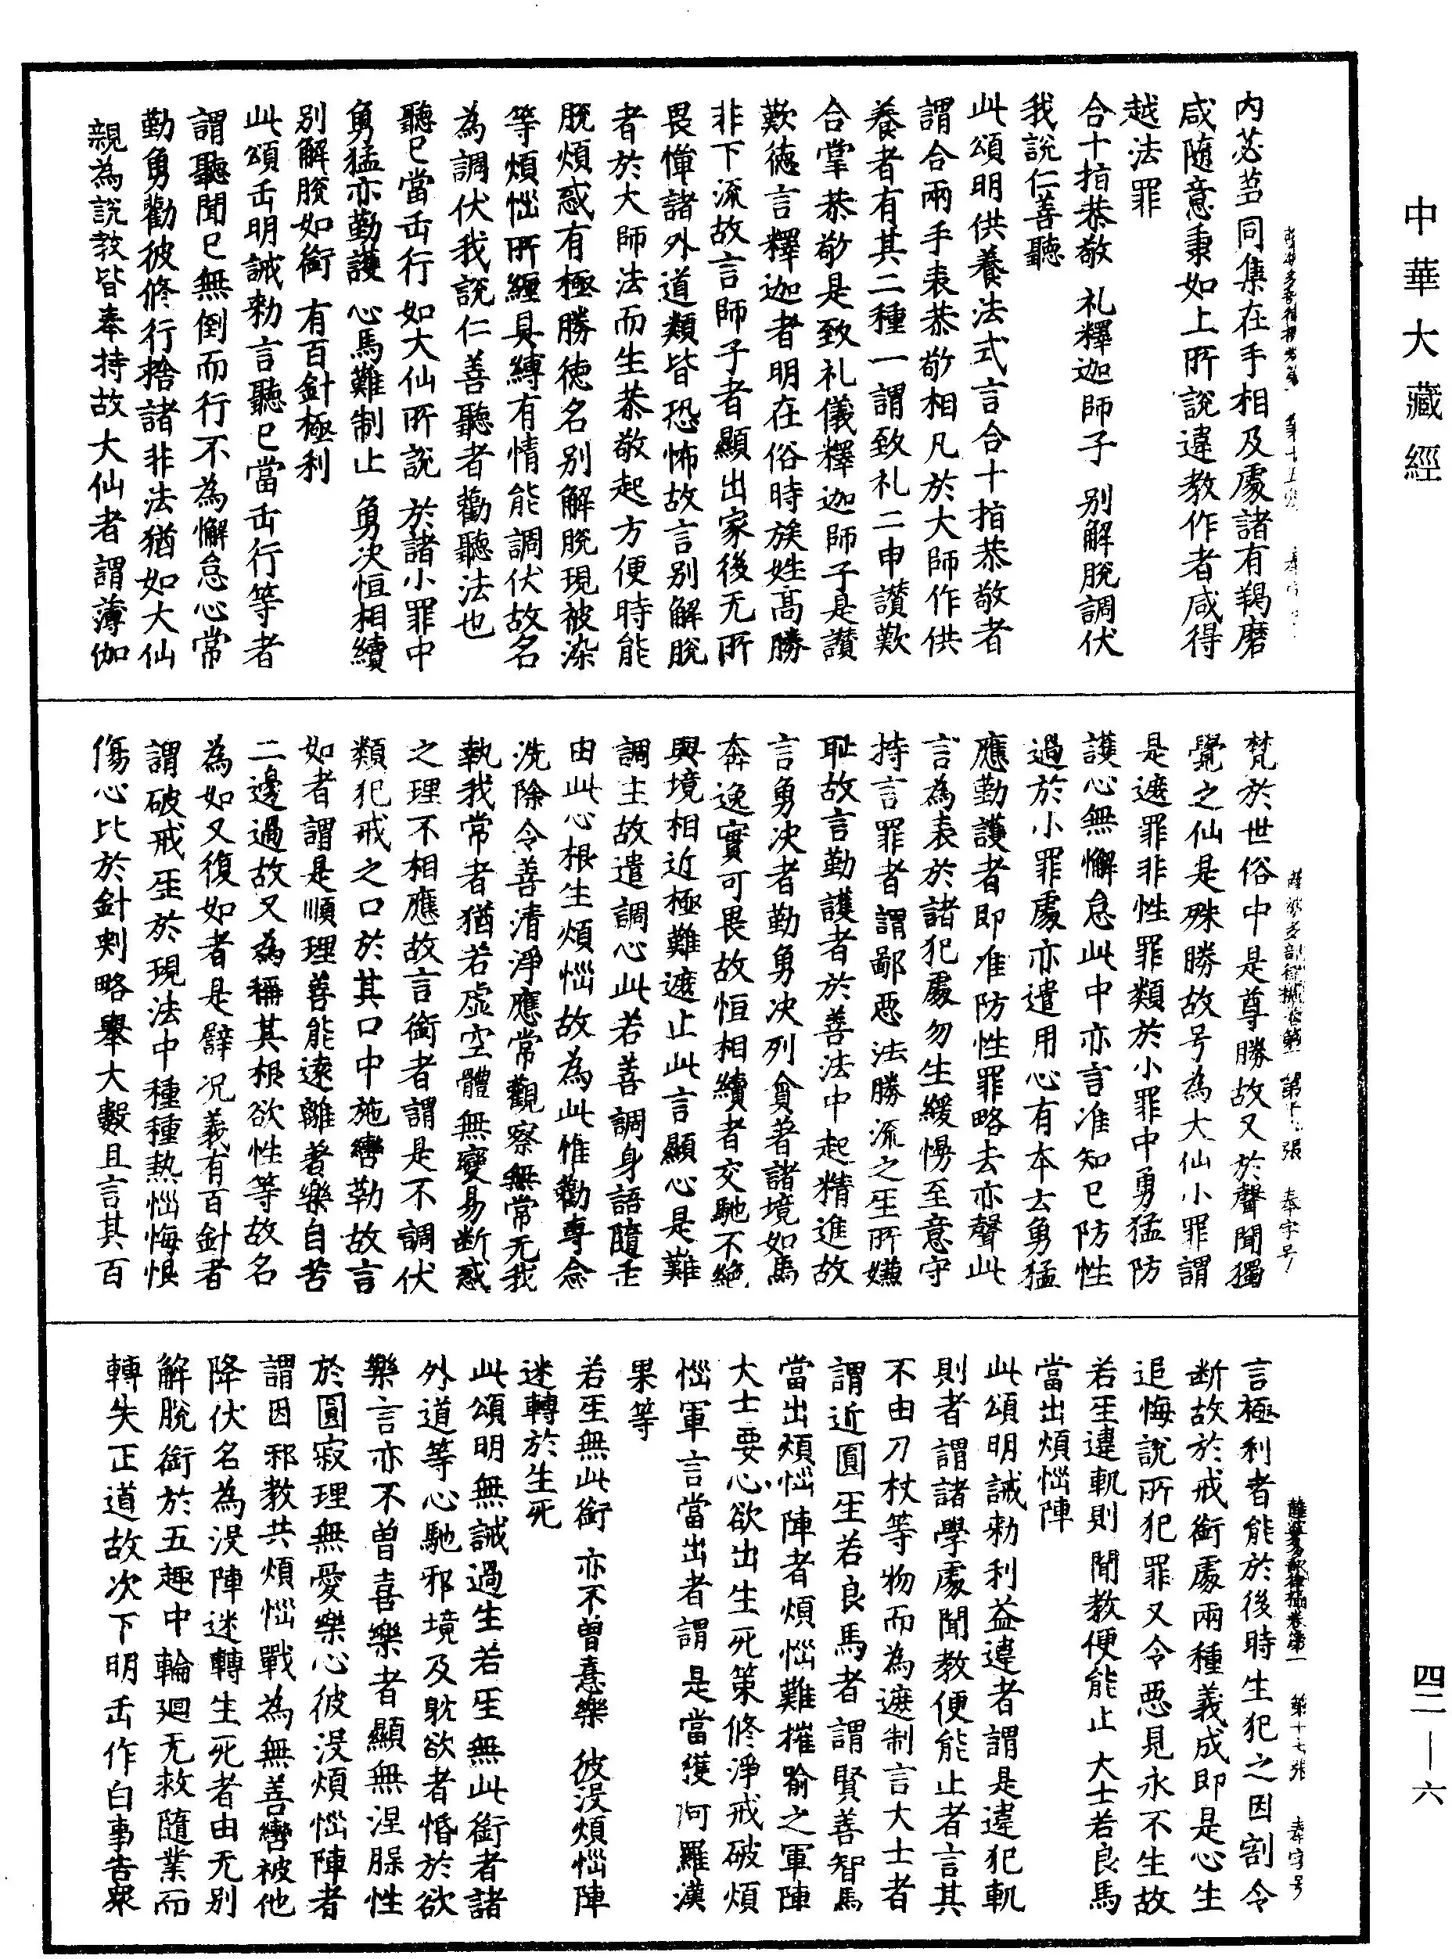 中華大藏經
內苾芻同集在手相及處諸有羯磨
咸隨意秉如上所說違教作者咸得
越法罪
合十指恭敬 礼釋迦師子 別解脫調伏
我說仁善聽
此頌明供養法式言合十指恭敬者
謂合兩手表恭敬相凡於大師作供
養者有其二種一謂致礼二申讚歎
合掌恭敬是致礼儀釋迦師子是讚
歎德言釋迦者明在俗時族姓高勝
非下流故言師子者顯出家後无所
畏憚諸外道類皆恐怖故言別解脫
者於大師法而生恭敬起方便時能
脫煩惑有極勝德名別解脫現被染
等煩惱所纏具縛有情能調伏故名
為調伏我說仁善聽者勸聽法也
聽已當缶行 如大仙所說 於諸小罪中
勇猛亦勤護 心馬難制止 勇决恒相續
別解脫如銜 有百針極利
此頌缶明誡勅言聽已當缶行等者
謂聽聞已無倒而行不為懈怠心常
勤勇勸彼修行捨諸非法猶如大仙
親為說教皆奉持故大仙者謂薄伽
梵於世俗中是尊勝故又於聲聞獨
覺之仙是殊勝故号為大仙小罪謂
是遮罪非性罪類於小罪中勇猛防
護心無懈怠此中亦言准知已防性
過於小罪處亦遣用心有本云勇猛
應勤護者即准防性罪略去亦聲此
言為表於諸犯處勿生緩慢至意守
持言罪者謂鄙惡法勝流之所嫌
耻故言勤護者於善法中起精進故
言勇决者勤勇决列貪著諸境如馬
奔逸實可畏故恒相續者交馳不絕
與境相近極難遮止此言顯心是難
調主故遣調心此若善調身語隨缶
由此心根生煩惱故為此惟勸專念
洗除令善清淨應常觀察無常无我
執我常者猶若虛空體無變易断惑
之理不相應故言銜者謂是不調伏
類犯戒之口於其口中施轡勒故言
如者謂是順理善能遠離著樂自苦
二邊過故又為稱其根欲性等故名
為如又復如者是譬況義有百針者
謂破戒於現法中種種熱惱悔恨
傷心比於針刺略舉大數且言其百
言極利者能於後時生犯之因割令
断故於戒銜處兩種義成即是心生
追悔說所犯罪又令惡見永不生故
若違軌則 聞教便能止 大士若良馬
當出煩惱陣
此頌明誡勅利益違者謂是違犯軌
則者謂諸學處聞教便能止者言其
不由刀杖等物而為遮制言大士者
謂近圓若良馬者謂賢善智馬
當出煩惱陣者煩惱難摧喻之軍陣
大士要心欲出生死策修淨戒破煩
惱軍言當出者謂是當獲阿羅漢
果等
若無此銜 亦不曾憙樂 彼没煩惱陣
迷轉於生死
此頌明無誡過生若無此銜者諸
外道等心馳邪境及躭欲者惛於欲
樂言亦不曾喜樂者顯無涅槃性
於圓寂理無愛樂心彼没煩惱陣者
謂因邪教共煩惱戰為無善轡被他
降伏名為没陣迷轉生死者由无別
解脫銜於五趣中輪迴无救隨業而
轉失正道故次下明缶作白事告眾
四二—六